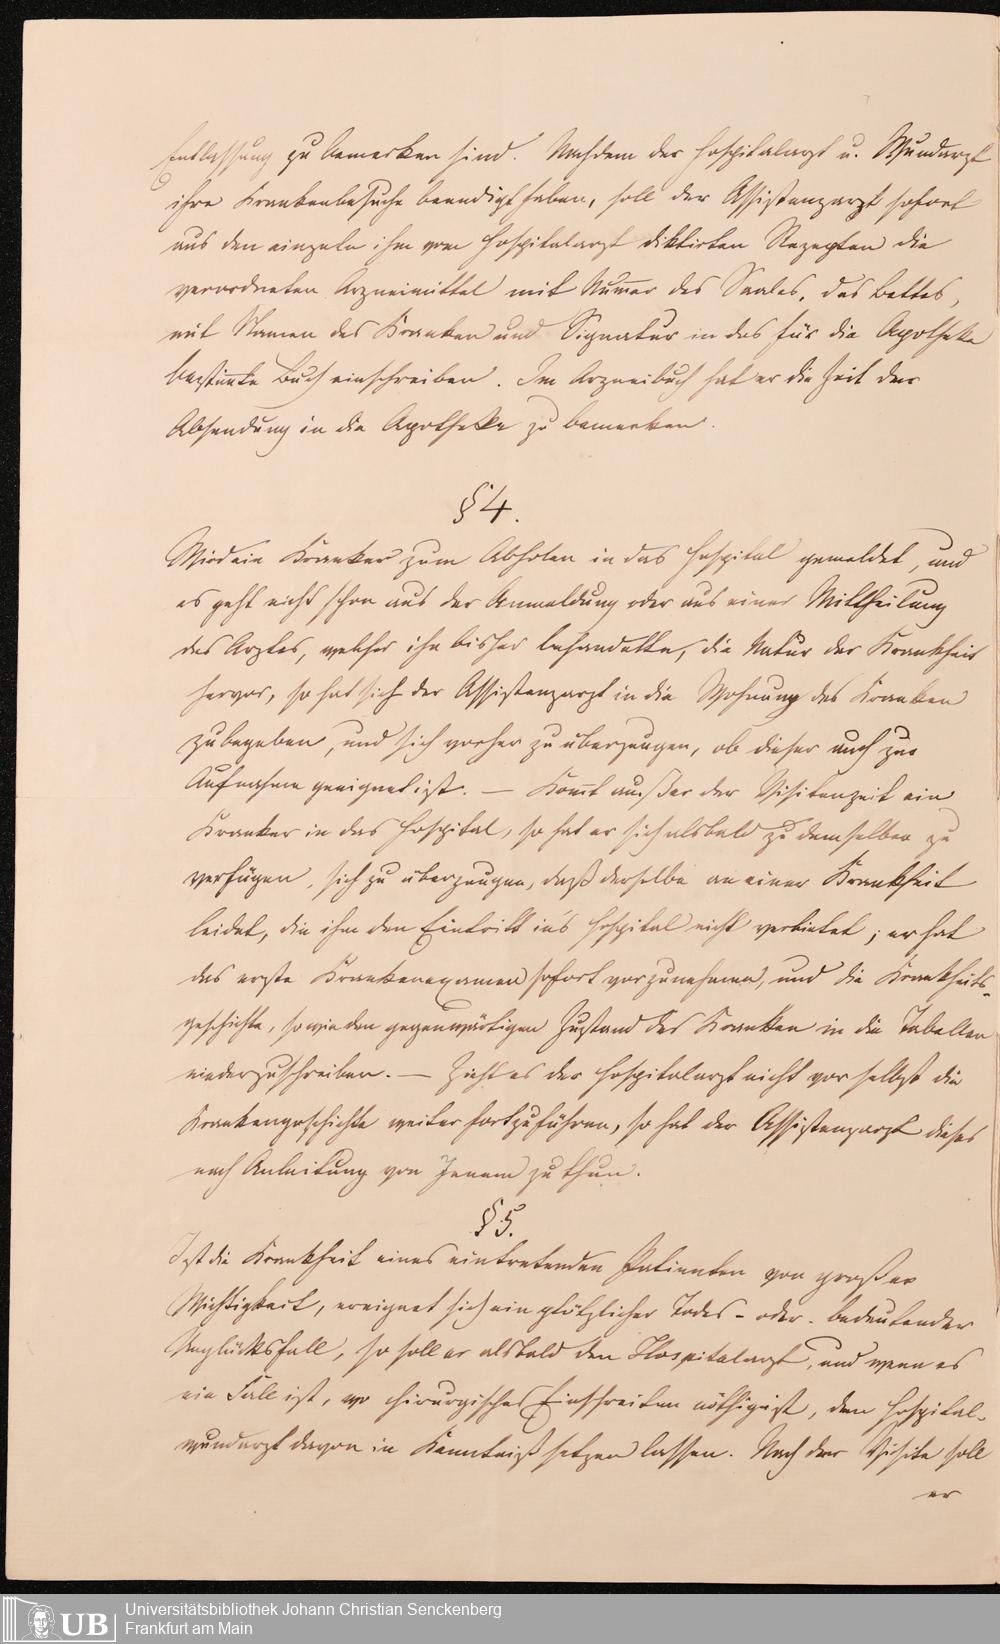 Entlassung zu bemerken sind. Nachdem der Hospitalarzt u. Wundarzt
ihre Krankenbesuche beendigt haben, soll der Assistenzarzt sofort
aus den einzeln ihm vom Hospitalarzt diktirten Rezepten die
verordneten Arzneimittel mit Num̅er des Saales, des Bettes,
mit Namen des Kranken und Signatur in das für die Apotheke
bestim̅te Buch einschreiben. Im Arzneibuch hat er die Zeit der
Absendung in die Apotheke zu bemerken.
§ 4.
Wird ein Kranker zum Abholen in das Hospital gemeldet, und
es geht nicht schon aus der Anmeldung oder aus einer Mittheilung
des Arztes, welcher ihn bisher behandelte, die Natur der Krankheit
hervor, so hat sich der Assistenzarzt in die Wohnung des Kranken
zu begeben, und sich vorher zu überzeugen, ob dieser auch zur
Aufnahme geeignet ist. — Kom̅t außer der Visitenzeit ein
Kranker in das Hospital, so hat er sich alsbald zu demselben zu
verfügen, sich zu überzeugen, daß derselbe an einer Krankheit
leidet, die ihm den Eintritt in's Hospital nicht verbietet; er hat
das erste Krankenexamen sofort vorzunehmen, und die Krankheits-
geschichte, so wie den gegenwärtigen Zustand des Kranken in die Tabellen
niederzuschreiben. — Zieht es der Hospitalarzt nicht vor selbst die
Krankengeschichte weiter fortzuführen, so hat der Assistenzarzt dieses
nach Anleitung von Jenem zu thun.
§ 5.
Ist die Krankheit eines eintretenden Patienten von großer
Wichtigkeit, ereignet sich ein plötzlicher Todes- oder bedeutender
Unglücksfall, so soll er alsbald den Hospitalarzt, und wenn es
ein Fall ist, wo chirurgisches Einschreiten nöthig ist, den Hospital-
wundarzt davon in Kenntniß setzen lassen. Nach der Visite soll
er
UB
Universitätsbibliothek Johann Christian Senckenberg
Frankfurt am Main